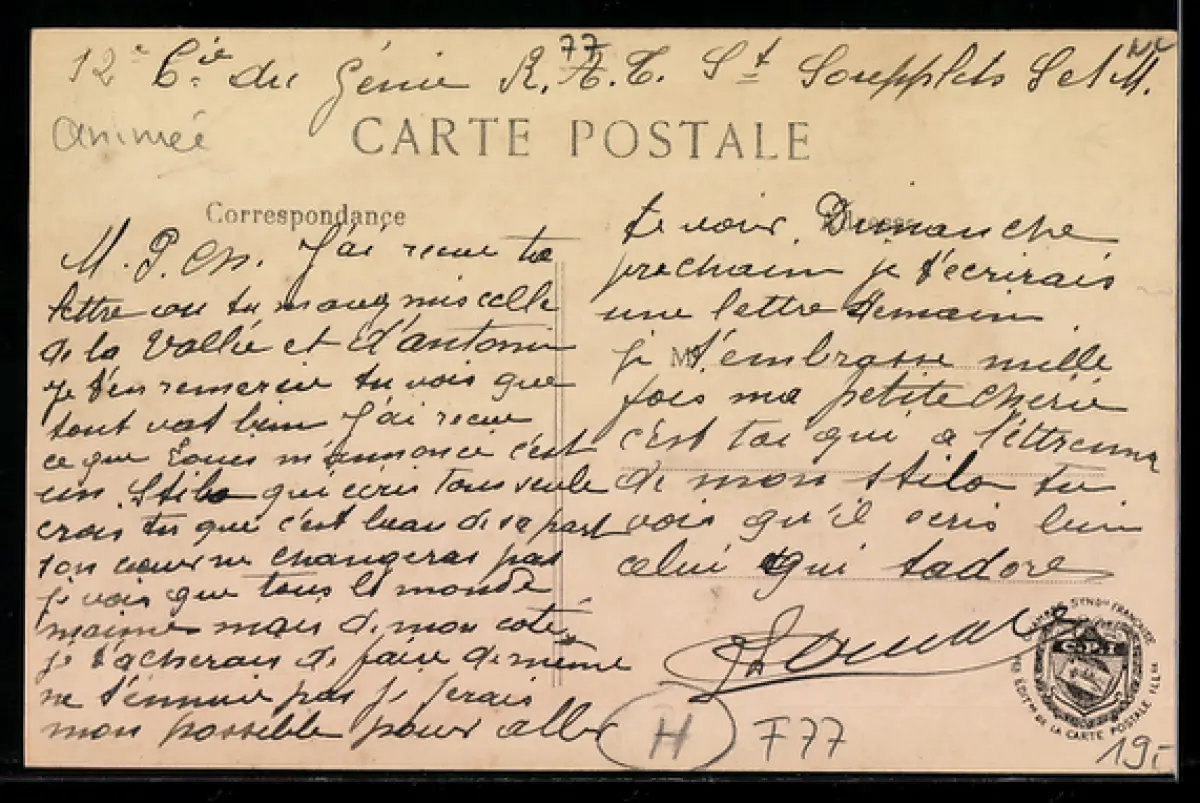 12e Cie du Génie R.A.T. St Soupplets S et M.
77
animée
CARTE POSTALE
Correspondance
M. P. Ch. J'ai recue ta
lettre ou tu m'avez mis celle
de la Vallée et d'antonin
je t'en remercie tu vois que
tout vat bien J'ai recue
ce que Louis m'annonce c'est
un Stilo qui ecris tous seule
crois tu que c'est beau de sa part
son cœur ne changeras pas
je vois que tous le monde
m'aime mais de mon coté
je tacherais de faire de même
ne t'ennuie pas je ferais
mon possible pour aller
te voir. Dimanche
prochain je t'ecrirais
une lettre demain
je t'embrasse mille
fois ma petite cherie
c'est toi qui a l'éttrenne
de mon stilo tu
vois qu'il ecris bien
celui qui tadore
H F77
LA CARTE POSTALE ILL
19.-